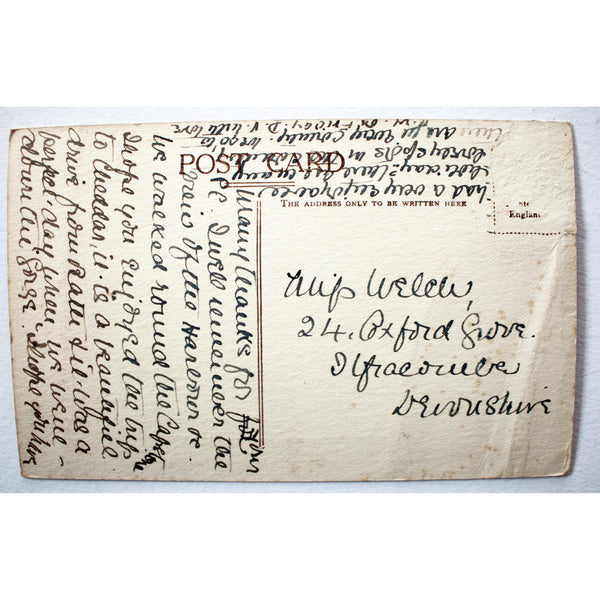 POST CARD
THE ADDRESS ONLY TO BE WRITTEN HERE
England
Miss Welch,
24. Oxford Grove.
Ilfracombe
Devonshire
Many thanks for your
P.C. I well remember the
view of the Harbour &c
we walked round the Capst
I hope you enjoyed the trip
to Cheddar, it is a beautiful
drive from Bath & it was a
perfect day when we were
down the Gorge. I hope you have
had a very enjoyable
lovely spots in
with love